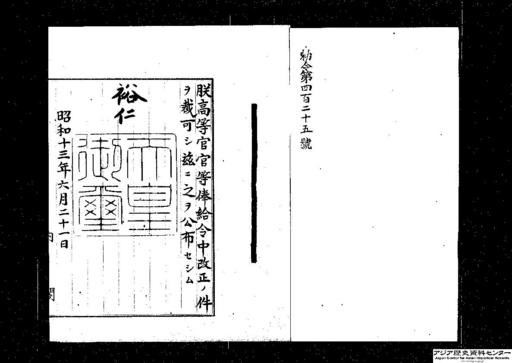 勅令第四百二十五號
朕高等官官等俸給令中改正ノ件
ヲ裁可シ玆ニ之ヲ公布セシム
裕仁
天皇
御璽
昭和十三年六月二十一日
内閣
アジア歴史資料センター
Japan Center for Asian Historical Records